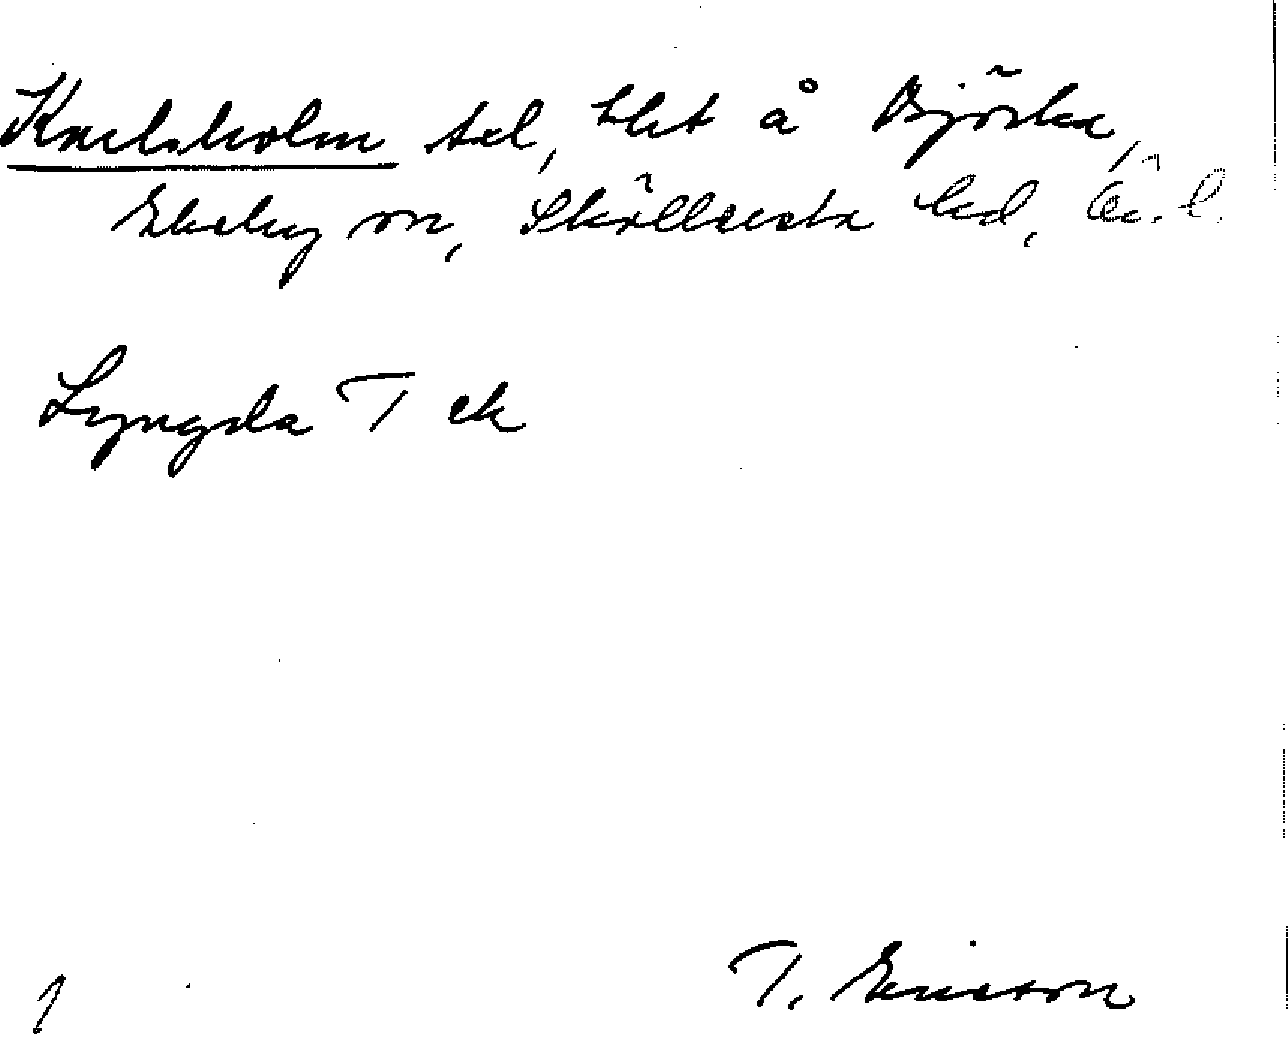 Karlsholm tel, lht å Björka,
Ekeby sn, Sköllersta hd, Ör.l.
Lyngsla T ek
T. Ericson
1